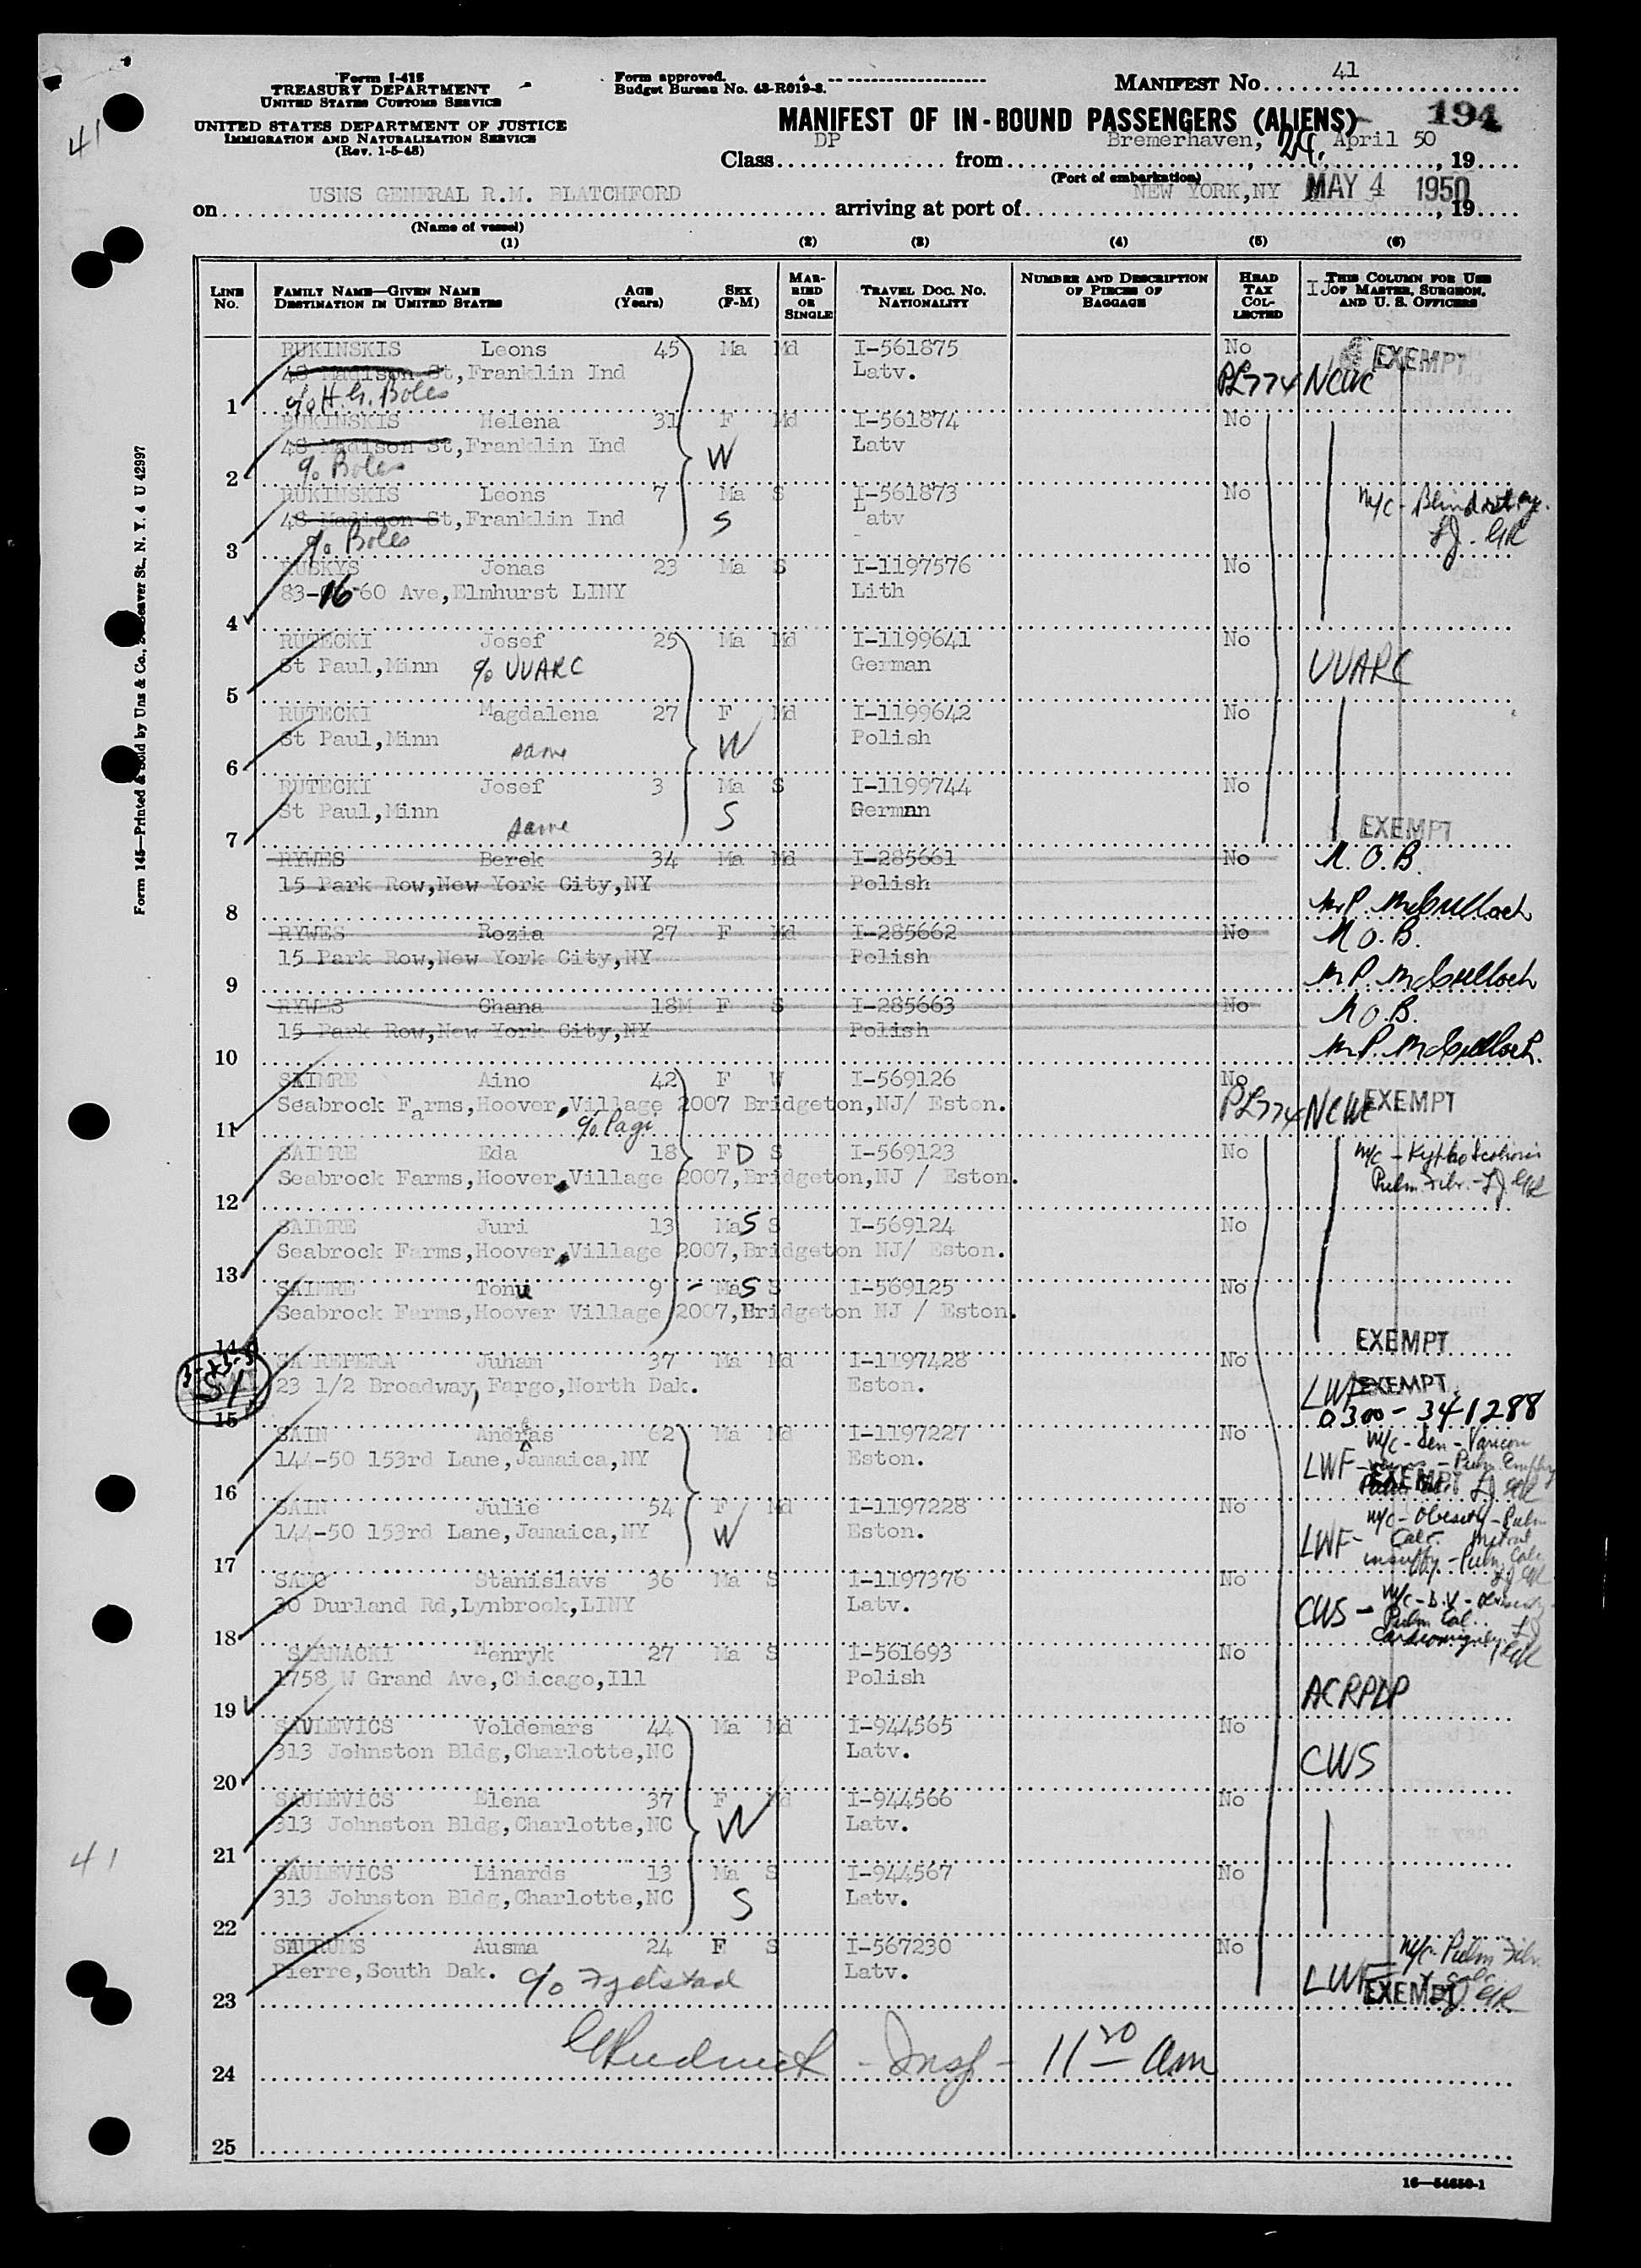 Form I-415
TREASURY DEPARTMENT
UNITED STATES CUSTOMS SERVICE
UNITED STATES DEPARTMENT OF JUSTICE
IMMIGRATION AND NATURALIZATION SERVICE
(Rev. 1-5-48)
Form approved.
Budget Bureau No. 43-R019-3.
MANIFEST No. 41
MANIFEST OF IN-BOUND PASSENGERS (ALIENS) 194
Class DP from Bremerhaven, 24. April 50, 19
(Port of embarkation)
on USNS GENERAL R.M. BLATCHFORD arriving at port of NEW YORK,NY MAY 4 1950, 19
(Name of vessel)
(1) (2) (3) (4) (5) (6)
LINE No. FAMILY NAME—GIVEN NAME DESTINATION IN UNITED STATES AGE (Years) SEX (F-M) MARRIED OR SINGLE TRAVEL DOC. No. NATIONALITY NUMBER AND DESCRIPTION OF PIECES OF BAGGAGE HEAD TAX COLLECTED THIS COLUMN FOR USE OF MASTER, SURGEON, AND U. S. OFFICERS
RUKINSKIS Leons 45 Ma Md I-561875 No EXEMPT
48 Madison St,Franklin Ind Latv. PL774 NCWC
1 c/o H. G. Boles
RUKINSKIS Helena 31 F Md I-561874 No
48 Madison St,Franklin Ind W Latv
2 c/o Boles
RUKINSKIS Leons 7 Ma S I-561873 No
48 Madison St,Franklin Ind S Latv
3 c/o Boles
RUSKYS Jonas 23 Ma S I-1197576 No
83-16-60 Ave,Elmhurst LINY Lith
4
RUTECKI Josef 25 Ma Md I-1199641 No
St Paul,Minn c/o UUARC German UUARC
5
RUTECKI Magdalena 27 F Md I-1199642 No
St Paul,Minn same W Polish
6
RUTECKI Josef 3 Ma S I-1199744 No
St Paul,Minn same S German EXEMPT
7
RYWES Berek 34 Ma Md I-285661 No N.O.B.
15 Park Row,New York City,NY Polish
8 M.P. McCulloch
RYWES Rozia 27 F Md I-285662 No N.O.B.
15 Park Row,New York City,NY Polish
9 M.P. McCulloch
RYWES Chana 18M F S I-285663 No N.O.B.
15 Park Row,New York City,NY Polish
10 M.P. McCulloch.
SAIMRE Aino 42 F W I-569126 No
Seabrock Farms,Hoover Village 2007 Bridgeton,NJ/ Eston. PL774 NCWC EXEMPT
11 c/o Pagi
SAIMRE Eda 18 F D S I-569123 No
Seabrock Farms,Hoover Village 2007,Bridgeton,NJ / Eston.
12
SAIMRE Juri 13 Ma S S I-569124 No
Seabrock Farms,Hoover Village 2007,Bridgeton NJ/ Eston.
13
SAIMRE Tonu 9 - Ma S S I-569125 No
Seabrock Farms,Hoover Village 2007,Bridgeton NJ / Eston.
14 EXEMPT
SAAREPERA Juhan 37 Ma Md I-1197428 No
23 1/2 Broadway, Fargo,North Dak. Eston. LWF EXEMPT
15 0300-341288
SAIN Andras 62 Ma Md I-1197227 No
144-50 153rd Lane,Jamaica,NY Eston. LWF EXEMPT
16
SAIN Julie 54 F Md I-1197228 No
144-50 153rd Lane,Jamaica,NY W Eston. LWF-
17
Stanislavs 36 Ma S I-1197376 No
30 Durland Rd,Lynbrook,LINY Latv. CWS -
18
SARNACKI Henryk 27 Ma S I-561693 No
1758 W Grand Ave,Chicago,Ill Polish ACRPDP
19
SAULEVICS Voldemars 44 Ma Md I-944565 No
313 Johnston Bldg,Charlotte,NC Latv. CWS
20
SAULEVICS Elena 37 F Md I-944566 No
313 Johnston Bldg,Charlotte,NC W Latv.
21
SAULEVICS Linards 13 Ma S I-944567 No
313 Johnston Bldg,Charlotte,NC S Latv.
22
SAURUMS Ausma 24 F S I-567230 No
Pierre,South Dak. Latv. LWF EXEMPT
23
24 Insp - 11 20 am
25
16—54650-1
Form 145—Printed & Sold by Unz & Co., Beaver St., N. Y. 4 U 42997
41
41